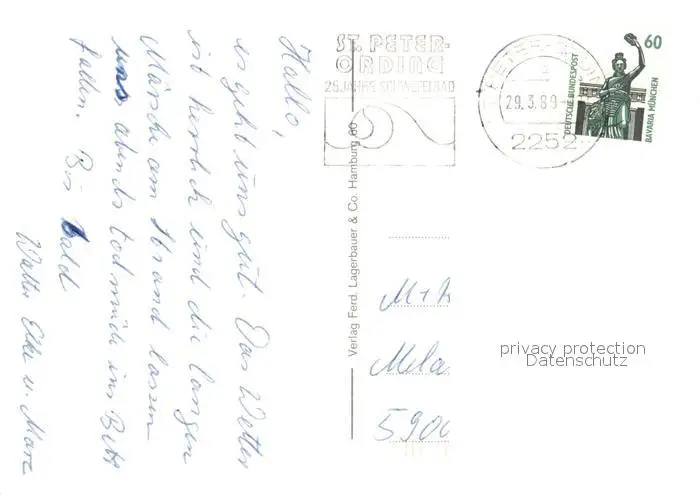 Hallo,
es geht uns gut. Das Wetter
ist herrlich und die langen
Märsche am Strand lassen
uns abends todmüde ins Bett
fallen. Bis bald
Walter Elke u. Marc
ST. PETER-
ORDING
25 JAHRE SCHWEFELBAD
29.3.89
2252
60
DEUTSCHE BUNDESPOST
BAVARIA MÜNCHEN
Verlag Ferd. Lagerbauer & Co. Hamburg 60
M+
Mela
5900
privacy protection
Datenschutz